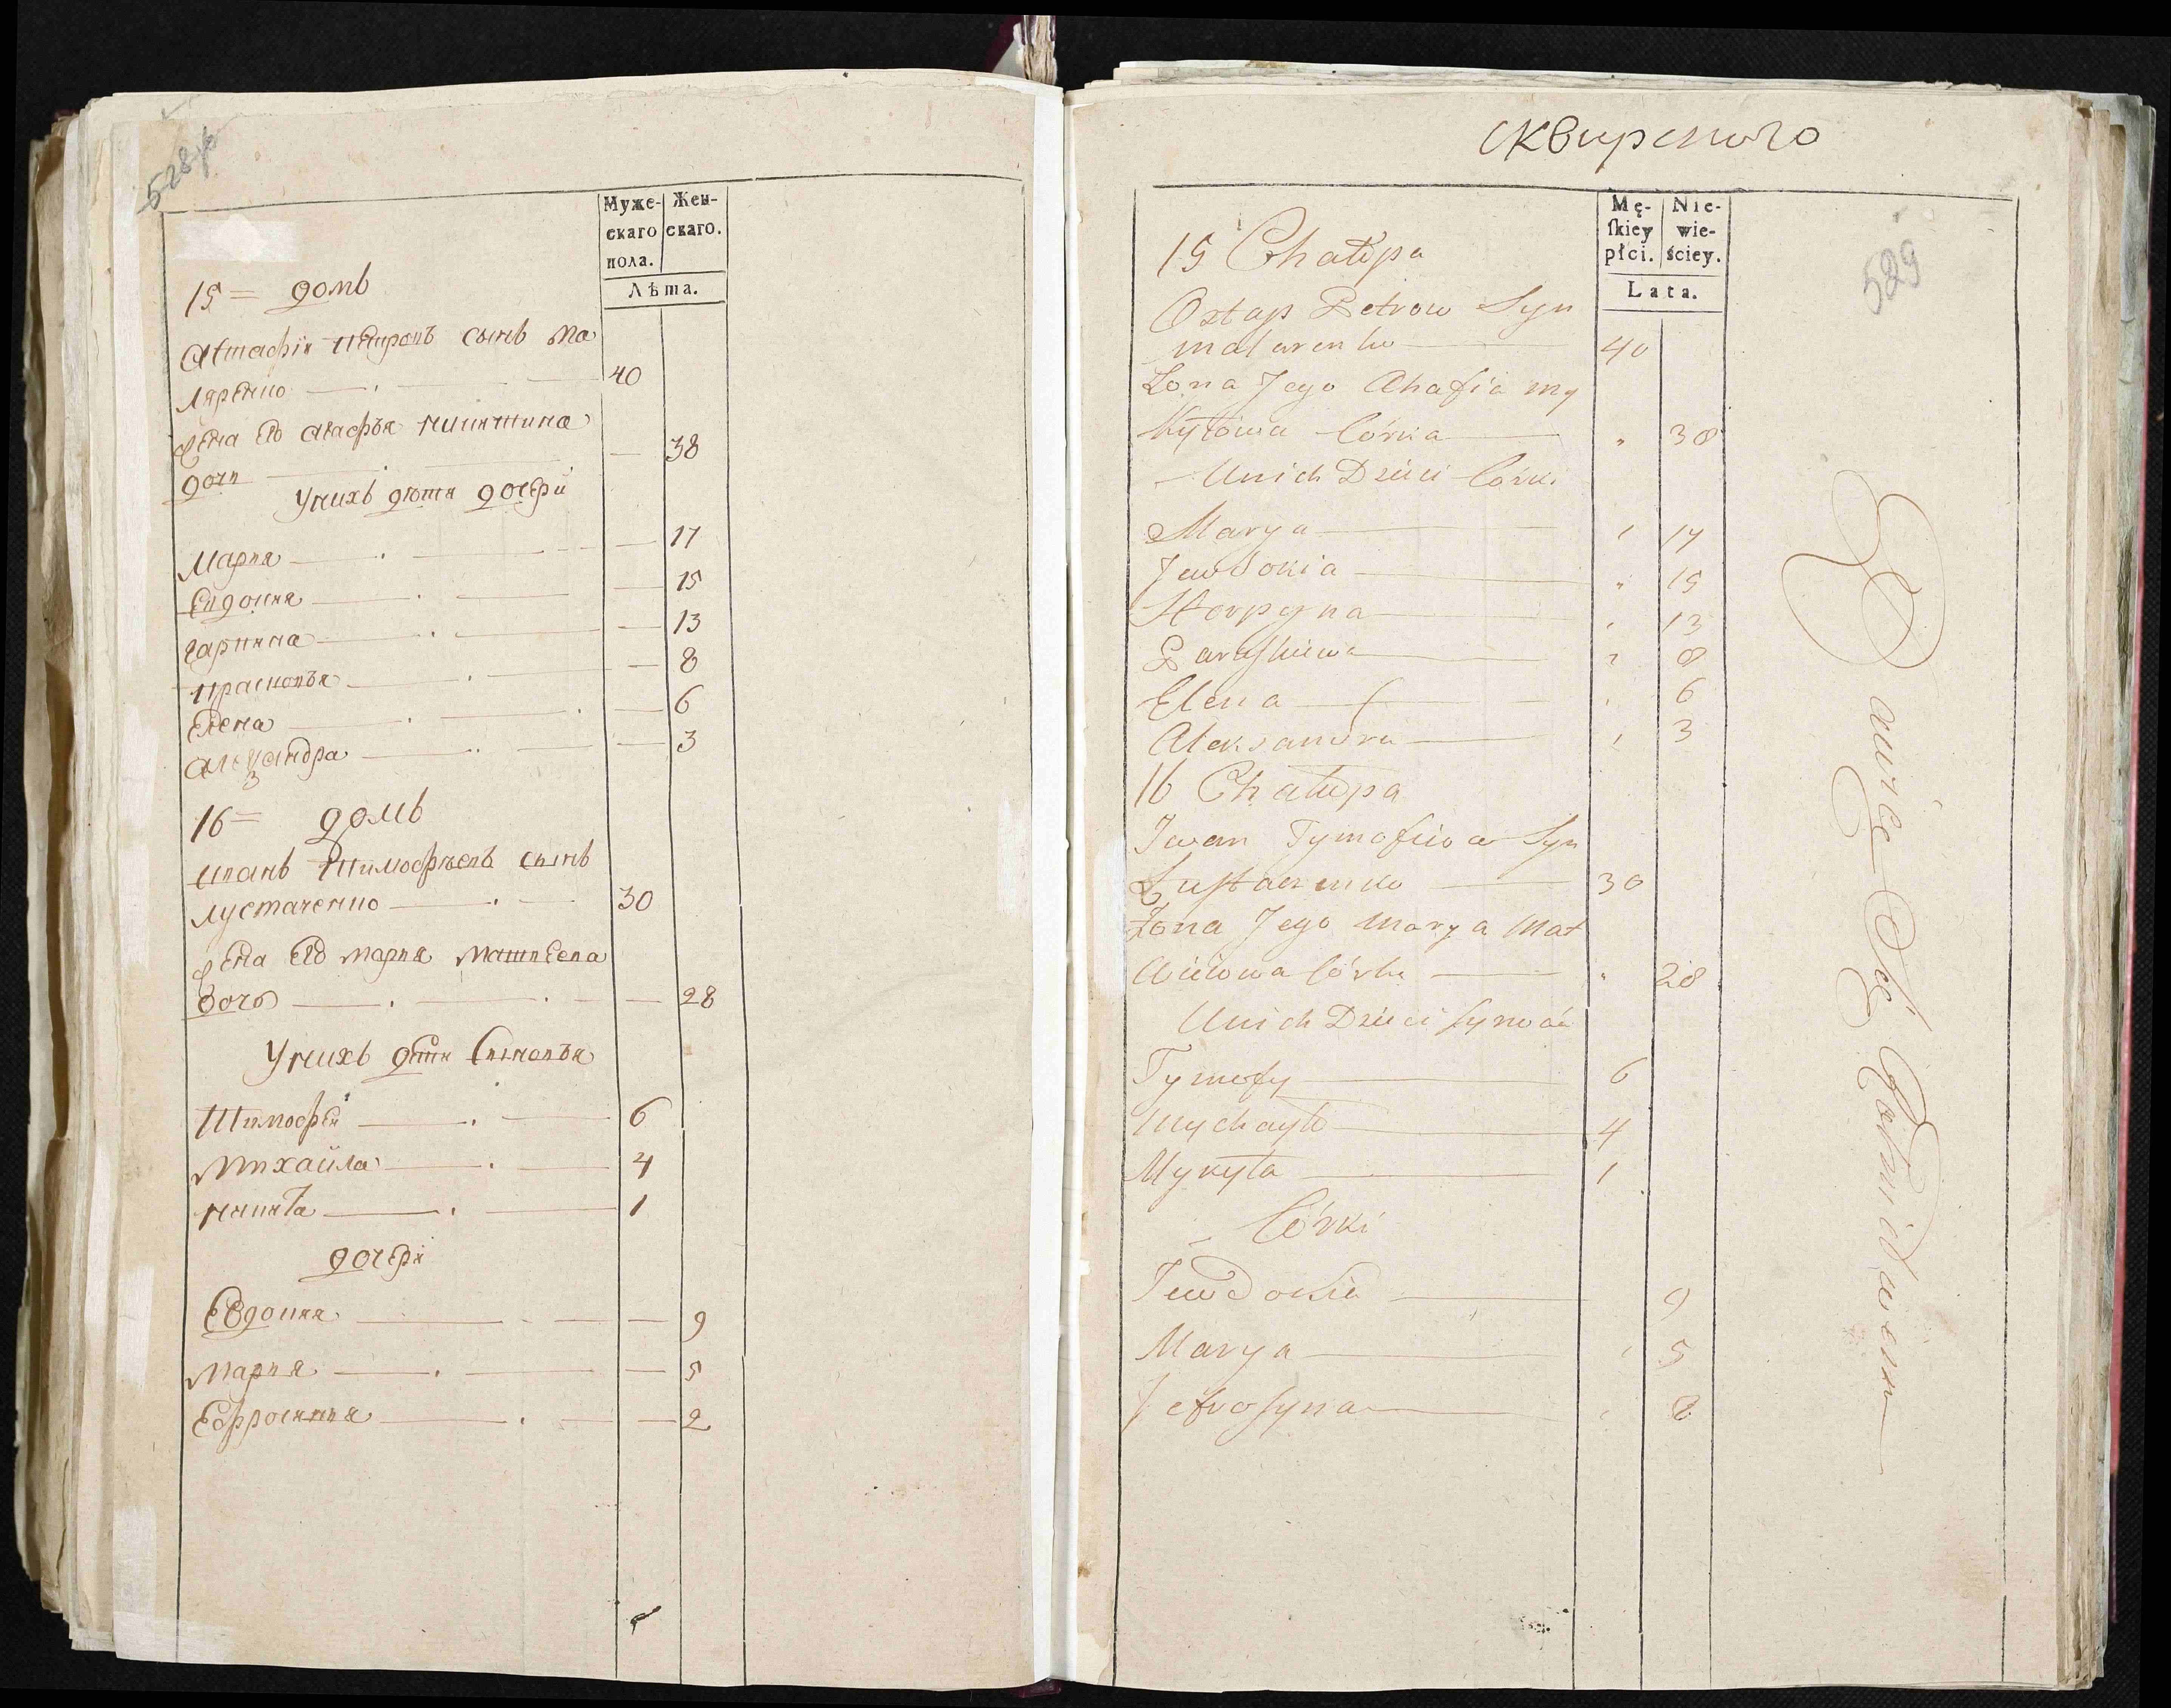 528 об
Муже-
скаго
пола.
Жен-
скаго.
Лѣта.
15 = домъ
Астафій Петровъ сынъ Ма
ляренко 40
жена его Агафья Никитина
дочь 38
У нихъ дѣти дочери
Мария 17
Евдокия 15
Гарпина 13
Прасковья 8
Елена 6
Александра 3
16 = домъ
Иванъ Тимофѣевъ сынъ
Лустаченко 30
жена его Мария Матвеева
дочь 28
У нихъ дети сыновья
Тимофей 6
Михайла 4
Никита 1
дочери
Евдокия 9
Мария 5
Ефросиния 2
сквирского
529
Mę-
ſkiey
płci.
Nie-
wie-
ściey.
Lata.
15 Chałupa
Ostap Petrow Syn
Malarenko 40
Żona Jego Ahafia My
kytowa Córka 38
U nich Dzieci Córki
Marya 17
Jewdokia 15
Horpyna 13
Paraskiewa 8
Elena 6
Aleksandra 3
16 Chałupa
Iwan Tymofiiow Syn
Łustaczenko 30
Żona Jego Marya Mat
wiiowa Córka 28
U nich Dzieci Synowie
Tymofy 6
Mychayło 4
Mykyta 1
Córki
Jewdokia 9
Marya 5
Jefrosyna 2